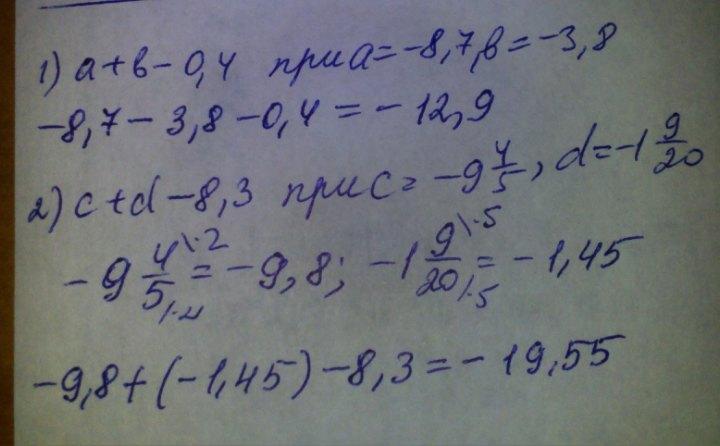 1) a+b-0,4 при a=-8,7, b=-3,8
-8,7-3,8-0,4=-12,9
2) c+d-8,3 при c=-9 4/5, d=-1 9/20
-9 4\·2/5/·2 = -9,8; -1 9\·5/20/·5 = -1,45
-9,8+(-1,45)-8,3=-19,55